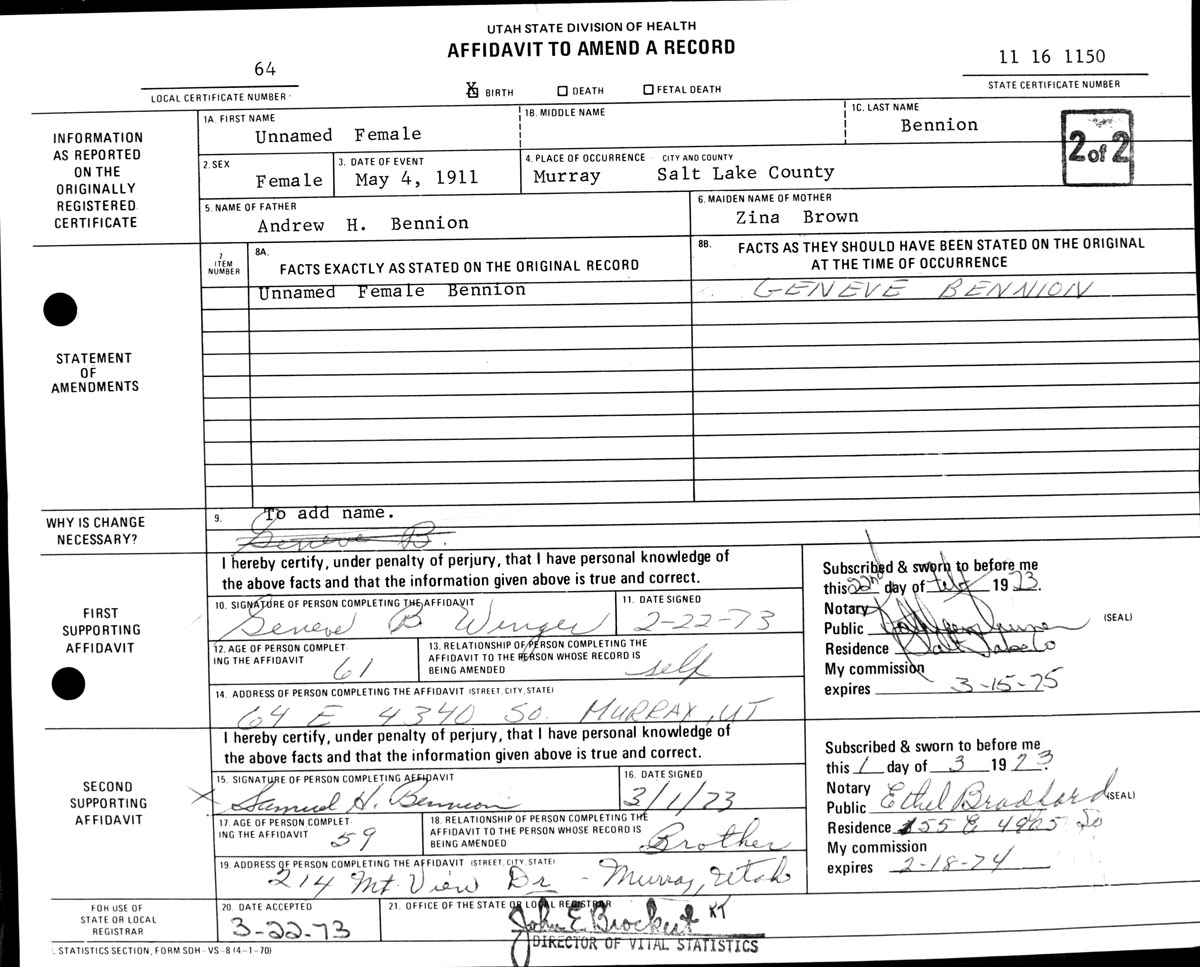 UTAH STATE DIVISION OF HEALTH
AFFIDAVIT TO AMEND A RECORD
64
LOCAL CERTIFICATE NUMBER
X BIRTH DEATH FETAL DEATH
11 16 1150
STATE CERTIFICATE NUMBER
INFORMATION
AS REPORTED
ON THE
ORIGINALLY
REGISTERED
CERTIFICATE
1A. FIRST NAME
Unnamed Female
1B. MIDDLE NAME
1C. LAST NAME
Bennion
2 of 2
2. SEX
Female
3. DATE OF EVENT
May 4, 1911
4. PLACE OF OCCURRENCE - CITY AND COUNTY
Murray Salt Lake County
5. NAME OF FATHER
Andrew H. Bennion
6. MAIDEN NAME OF MOTHER
Zina Brown
STATEMENT
OF
AMENDMENTS
7
ITEM
NUMBER
8A.
FACTS EXACTLY AS STATED ON THE ORIGINAL RECORD
8B. FACTS AS THEY SHOULD HAVE BEEN STATED ON THE ORIGINAL
AT THE TIME OF OCCURRENCE
Unnamed Female Bennion
GENEVE BENNION
WHY IS CHANGE
NECESSARY?
9. To add name.
Geneve B.
FIRST
SUPPORTING
AFFIDAVIT
I hereby certify, under penalty of perjury, that I have personal knowledge of
the above facts and that the information given above is true and correct.
10. SIGNATURE OF PERSON COMPLETING THE AFFIDAVIT
Geneve B Winger
11. DATE SIGNED
2-22-73
12. AGE OF PERSON COMPLET-
ING THE AFFIDAVIT
61
13. RELATIONSHIP OF PERSON COMPLETING THE
AFFIDAVIT TO THE PERSON WHOSE RECORD IS
BEING AMENDED
self
14. ADDRESS OF PERSON COMPLETING THE AFFIDAVIT (STREET, CITY, STATE)
64 E 4340 So. MURRAY, UT
Subscribed & sworn to before me
this 22nd day of Feb 1973.
Notary
Public
(SEAL)
Residence Salt Lake Co
My commission
expires 3-15-75
SECOND
SUPPORTING
AFFIDAVIT
I hereby certify, under penalty of perjury, that I have personal knowledge of
the above facts and that the information given above is true and correct.
15. SIGNATURE OF PERSON COMPLETING AFFIDAVIT
X Samuel H. Bennion
16. DATE SIGNED
3/1/73
17. AGE OF PERSON COMPLET-
ING THE AFFIDAVIT
59
18. RELATIONSHIP OF PERSON COMPLETING THE
AFFIDAVIT TO THE PERSON WHOSE RECORD IS
BEING AMENDED
Brother
19. ADDRESS OF PERSON COMPLETING THE AFFIDAVIT (STREET, CITY, STATE)
214 Mt. View Dr - Murray, Utah
Subscribed & sworn to before me
this 1 day of 3 1973.
Notary
Public Ethel Bradford (SEAL)
Residence 155 E 4905 So
My commission
expires 2-18-74
FOR USE OF
STATE OR LOCAL
REGISTRAR
20. DATE ACCEPTED
3-22-73
21. OFFICE OF THE STATE OR LOCAL REGISTRAR
John E. Brockert KT
DIRECTOR OF VITAL STATISTICS
STATISTICS SECTION, FORM SDH - VS - 8 (4-1-70)